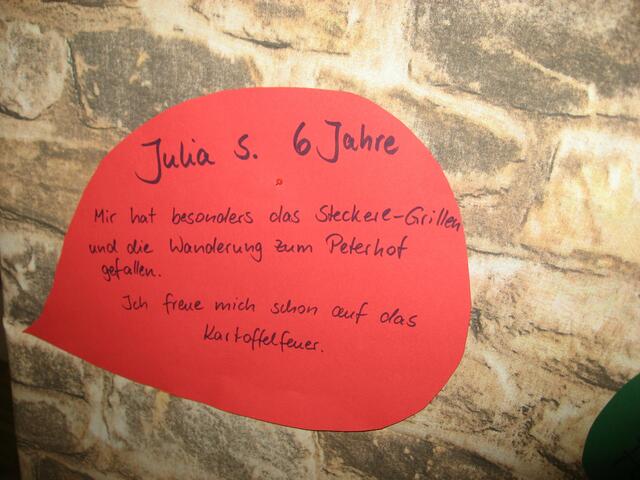 Julia S. 6 Jahre
Mir hat besonders das Steckerl-Grillen
und die Wanderung zum Peterhof
gefallen.
Ich freue mich schon auf das
Kartoffelfeuer.